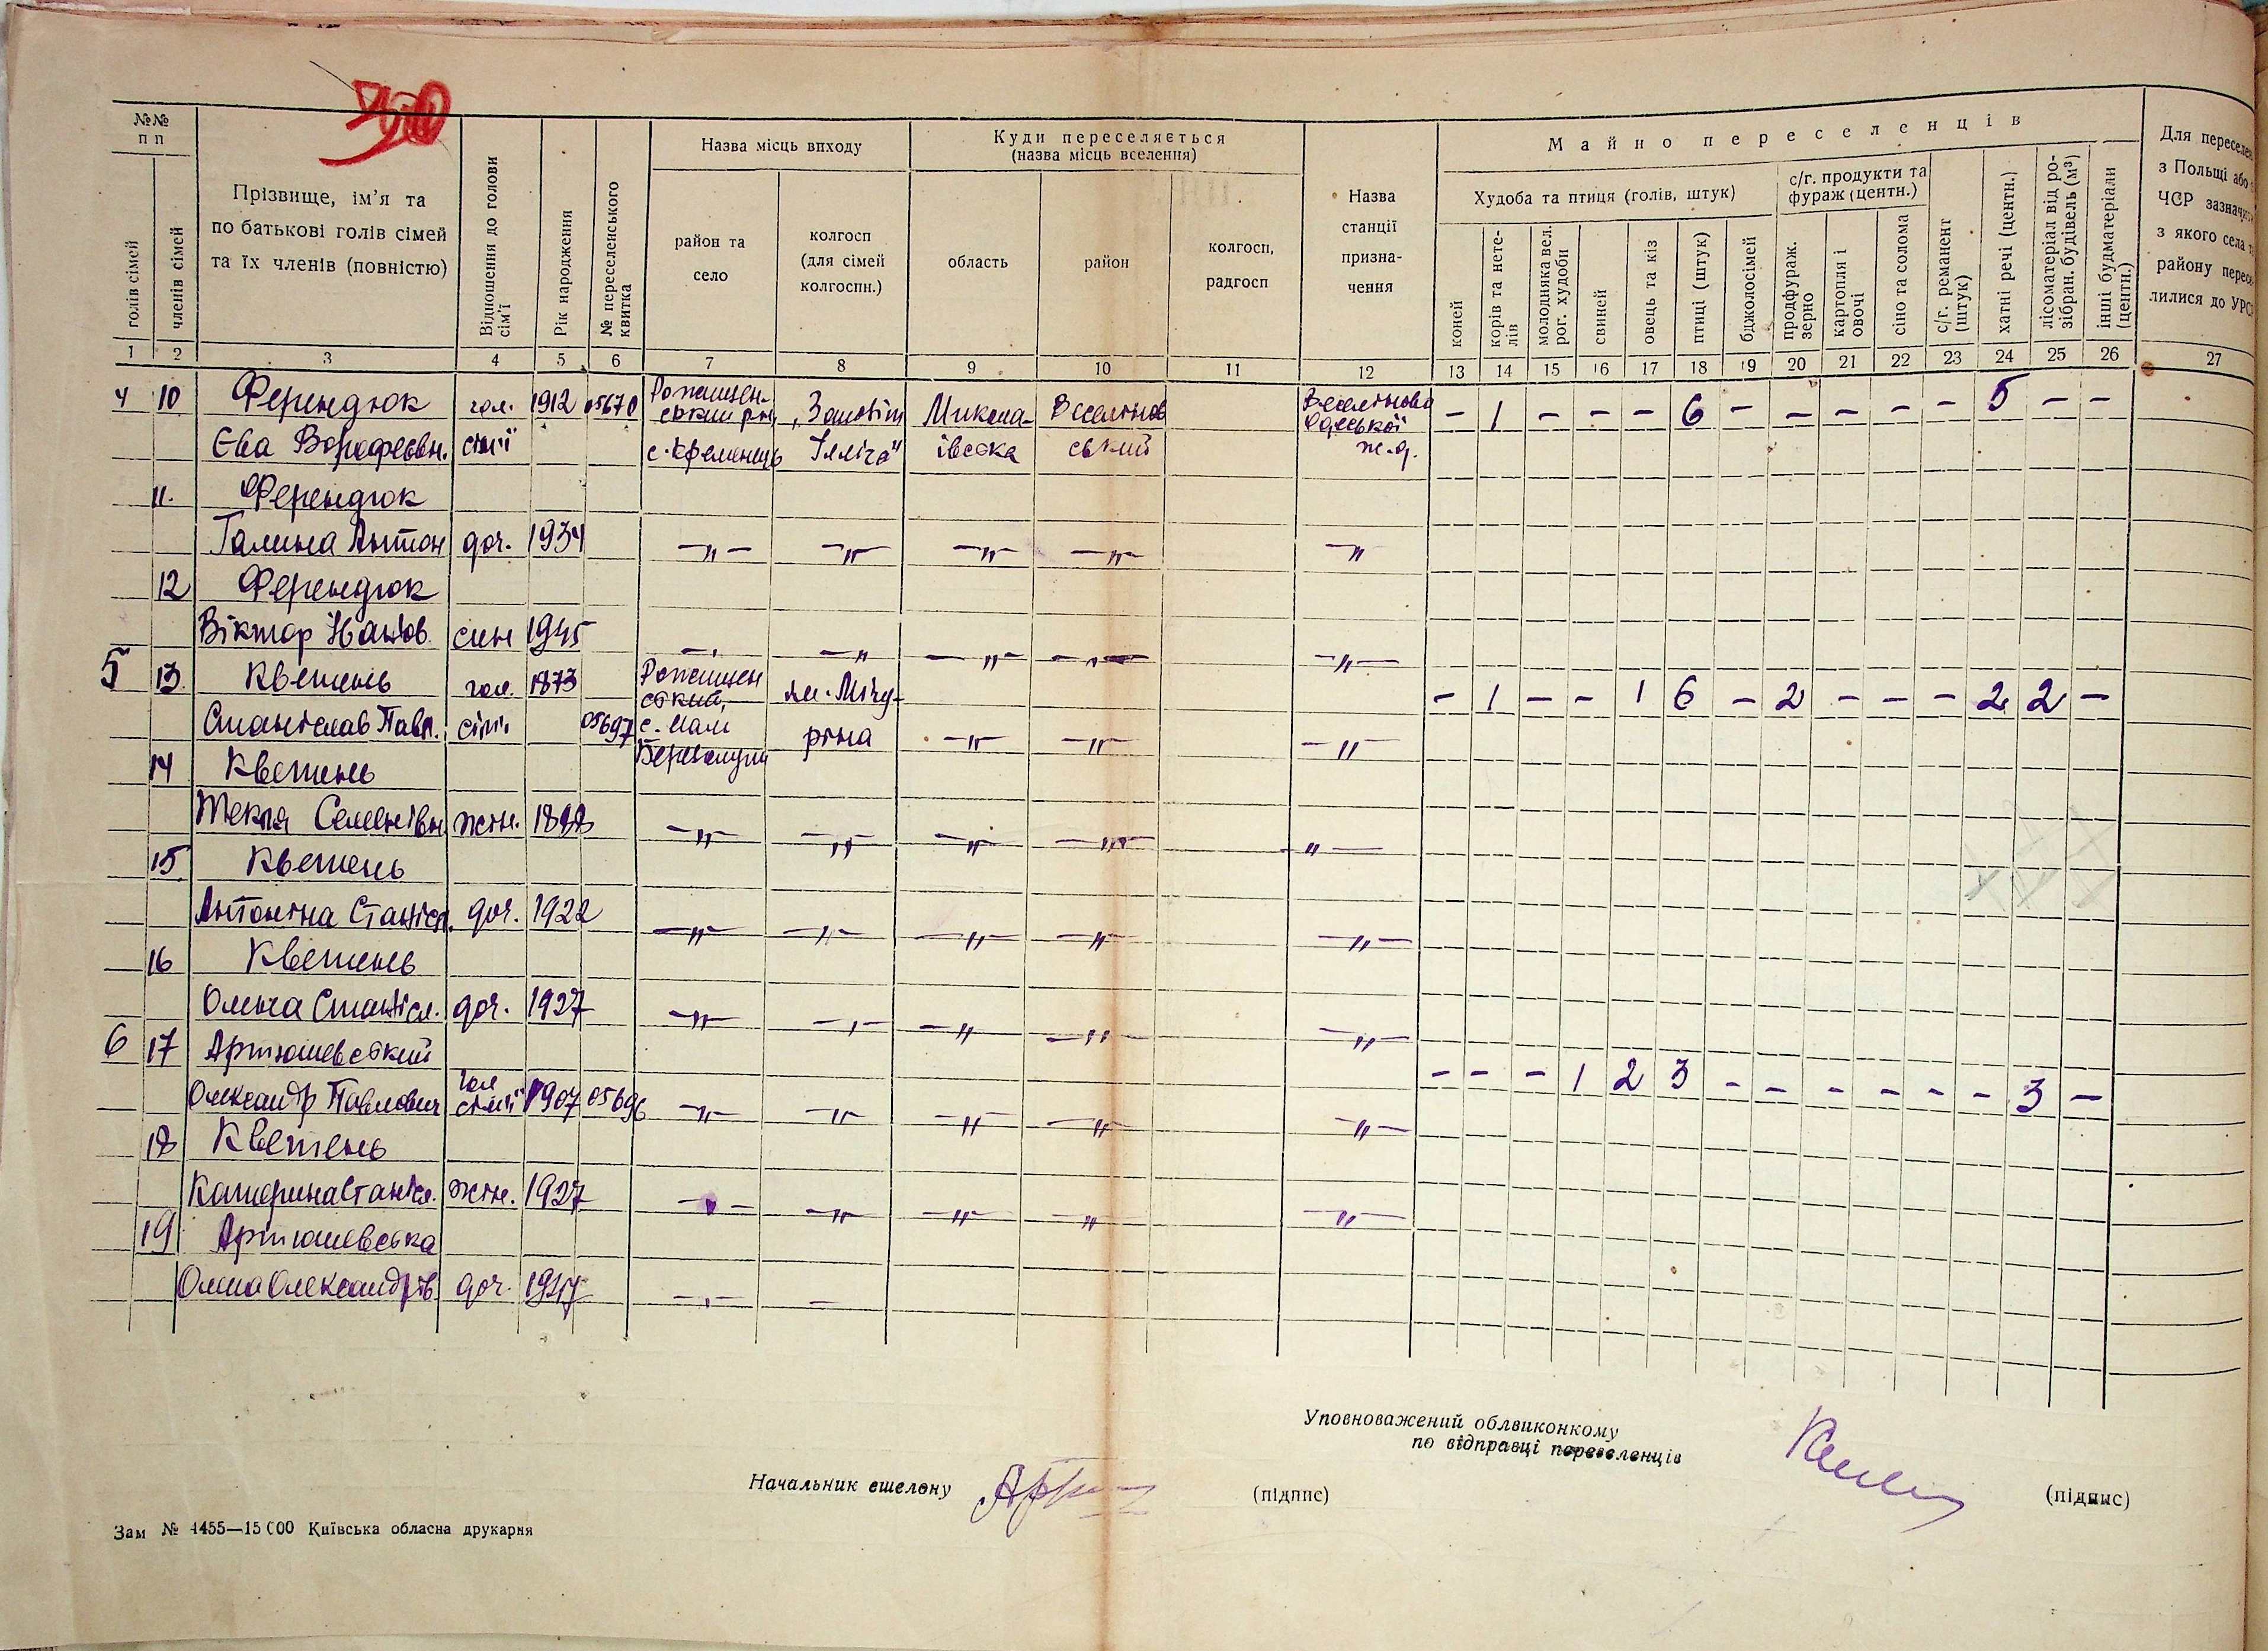 №№
п п
голів сімей
членів сімей
Прізвище, ім'я та
по батькові голів сімей
та їх членів (повністю)
Відношення до голови
сім'ї
Рік народження
№ переселенського
квитка
Назва місць виходу
район та
село
колгосп
(для сімей
колгоспн.)
Куди переселяється
(назва місць вселення)
область
район
колгосп,
радгосп
Назва
станції
призна-
чення
Майно переселенців
Худоба та птиця (голів, штук)
коней
корів та нете-
лів
молодняка вел.
рог. худоби
свиней
овець та кіз
птиці (штук)
бджолосімей
с/г. продукти та
фураж (центн.)
продфураж.
зерно
картопля і
овочі
сіно та солома
с/г. реманент
(штук)
хатні речі (центн.)
лісоматеріал від ро-
зібран. будівель (м³)
інші будматеріали
(центн.)
Для переселен
з Польщі або
ЧСР зазначити
з якого села т
району пересе
лилися до УРС
1 2 3 4 5 6 7 8 9 10 11 12 13 14 15 16 17 18 19 20 21 22 23 24 25 26 27
4 10 Ферендюк гол. 1912 05670 Рожищен- „Заповіт Микола- Веселинов Веселиново - 1 - - - 6 - - - - - 5 - -
ський р-н, Одеської
Єва сім'ї с. Кременець Ілліча" ївська ський ж.д.
11. Ферендюк
Галина Антон доч. 1934 -"- -"- -"- -"- -"
12 Ферендюк
Віктор Іванов. син 1945 -"- -" -"- -"- -"-
5 13. Кветень гол. 1873 Рожищен ім. Мічу- - 1 - - 1 6 - 2 - - - 2 2 -
ський,
Станіслав Павл. сім'ї 05697 с. Мали ріна -"- -"- -"-
14 Кветень
Текля Семенівн. жін. -"- -"- -"- -"- "-
15 Кветень
Антоніна Станісл. доч. 1922 -"- -"- -"- -"- -"-
16 Кветень
Ольга Станісл. доч. 1927 -"- -"- -"- -"- -"-
6 17 Артюшевський - - - 1 2 3 - - - - - - 3 -
гол
Олександр Павлович сім'ї 1907 05696 -"- -"- -"- -"- -"-
18 Кветень
Катерина Станісл. жін. 1927 -"- -"- -"- -"- -"-
19 Артюшевська
Олександрів. доч. 1947 -"- -
Уповноважений облвиконкому
по відправці переселенців
(підпис)
Начальник ешелону
(підпис)
Зам № 4455—15 000 Київська обласна друкарня